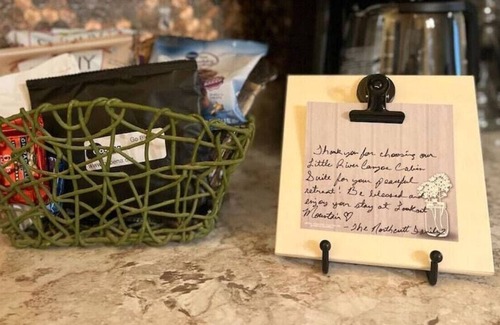 Thank you for choosing our
Little River Canyon Cabin
Suite for your peaceful
retreat! Be blessed and
enjoy your stay at Lookout
Mountain ♡
- The Northcutt Family